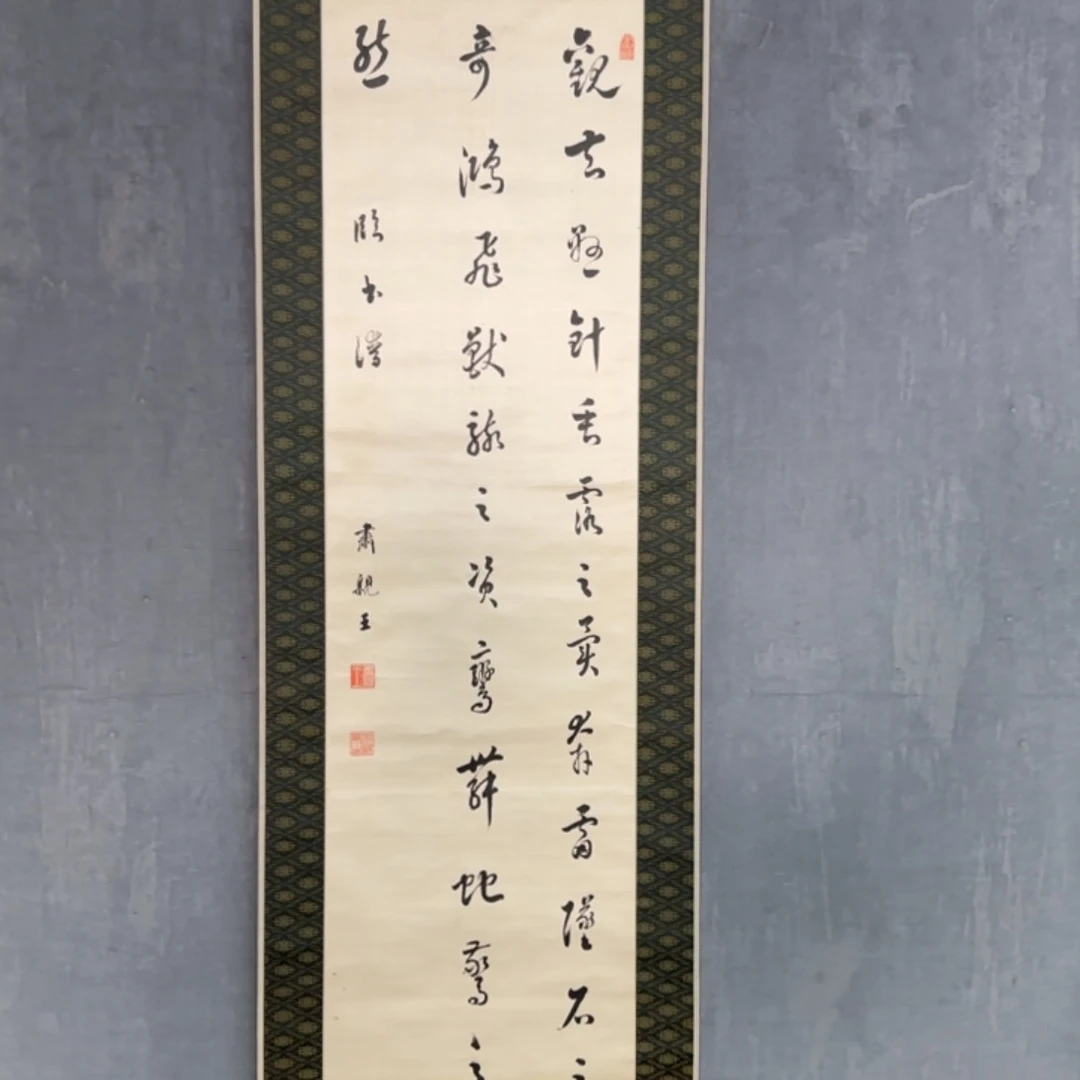 觀夫懸針垂露之異奔雷墜石之
奇鴻飛獸駭之資鸞舞蛇驚之
態
臨書譜
肅親王